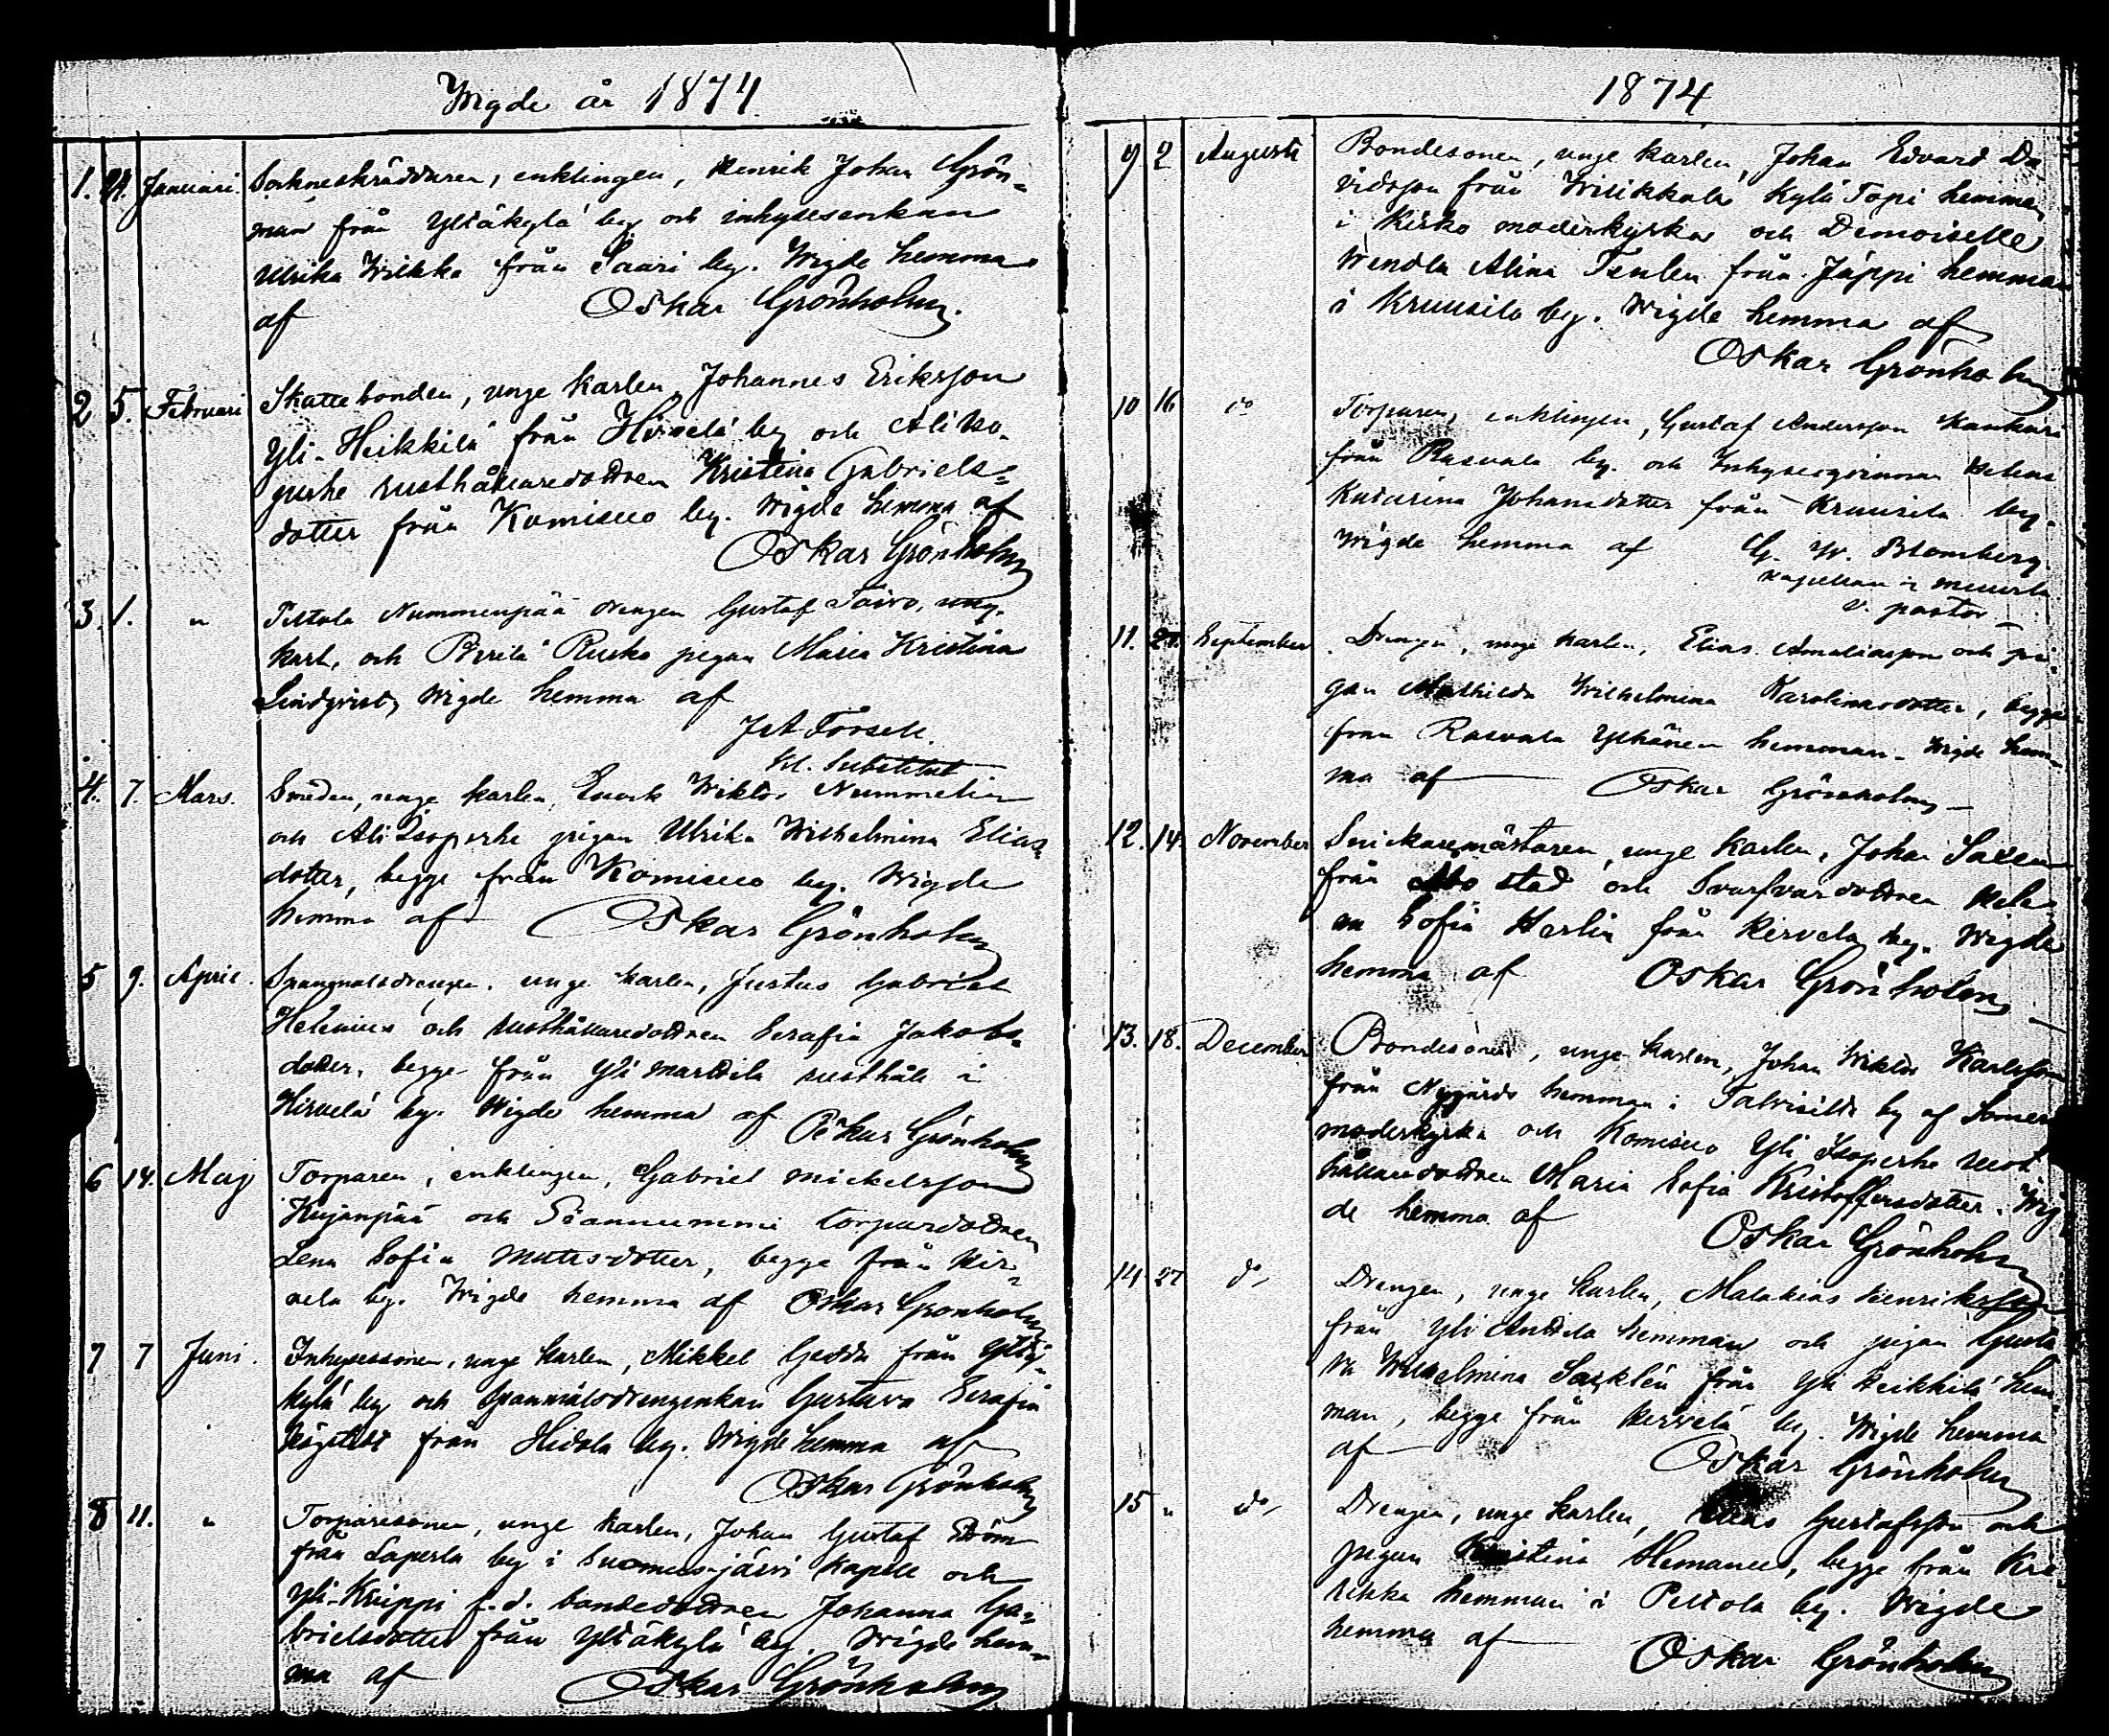 Wigde år 1874
1. 21. Januari. Sockneskräddaren, enklingen, Henrik Johan Grön-
man från Yltäkylä by och inhysesenkan
Ulrika Wilkka från Saari by. Wigde hemma
af Oskar Grönholm.
2 5. Februari Skattebonden, unge karlen, Johannes Eriksson
Yli-Heikkilä från Hirvelä by och Ali Iso-
perhe rusthållaredottren Kristina Gabriels-
dotter från Komisuo by. Wigde hemma af
Oskar Grönholm
3. 1. " Peltola Nummenpää drengen Gustaf Toivo, ung.
karl, och Rusko pigan Maria Kristina
Lindqvist, Wigde hemma af
J.A. Forsell.
Kl. Substitut
4. 7. Mars. Smeden, unge karlen, Enock Wiktor Nummelin
och Ali Isoperhe pigan Ulrika Wilhelmina Elias-
dotter, begge från Komisuo by. Wigde
hemma af Oskar Grönholm
5 9. April. Spanmålsdrengen, unge karlen, Justus Gabriel
Helenius och rusthållaredottren Serafia Jakobs-
dotter, begge från Yli Marttila rusthåll i
Hirvelä by. Wigde hemma af Oskar Grönholm
6 14. Maj Torparen, enklingen, Gabriel Mickelsson
Kujanpää och torparedottren
Lena Sofia Mattsdotter, begge från Kir-
vela by. Wigde hemma af Oskar Grönholm
7 7 Juni. Inhysessonen, unge karlen, Mikkel Gedda från Yltä-
kylä by och Spanmålsdrengenkan Gustava Serafia
från Hidola by. Wigde hemma af
Oskar Grönholm
8 11. " Torparesonen, unge karlen, Johan Gustaf Ström
från Laperla by i Suomusjärvi kapell och
Yli-Knippi f.d. bondedottren Johanna Ga-
brielsdotter från Yltäkylä by. Wigde hem-
ma af Oskar Grönholm
1874
9. 2 Augusti Bondesonen, unge karlen, Johan Edvard Da-
vidsson från Wilikkala kylä Topi hemman
i Kisko moderkyrka och Demoiselle
Wendla Alina Tenlen från Jäppi hemman
i Kruusila by. Wigde hemma af
Oskar Grönholm
10 16 do Torparen, enklingen, Gustaf Andersson Kankari
från Rasvala by. och Inhyseqvinnan Helena
Katarina Johansdotter från Kruusila by.
Wigde hemma af G. W. Blomberg.
kapellan i
v. pastor
11. 20. September Drengen, unge karlen, Elias Amaliasson och pi-
gan Mathilda Wilhelmina Karolinasdotter, begge
från Rasvala Ylhäinen hemman. Wigde hem-
ma af Oskar Grönholm
12. 14. November Snickaremästaren, unge karlen, Johan Saxen
från Åbo stad och Svarfvardottren Hele-
na Sofia Herlin från Kirvela by. Wigde
hemma af Oskar Grönholm
13. 18. December Bondesonen, unge karlen, Johan Wiktor Karlsson
från Nygårds hemman i Talvisilta by af Somero
moderkyrka och Komisuo Yli Isoperhe rust-
hållaredottren Maria Sofia Kristoffersdotter. Wig-
de hemma af Oskar Grönholm
14 27 do, Drengen, unge karlen, Malakias Henriksson
från Yli Anttila hemman och pigan Gusta-
va Wilhelmina Sarklén från Yli Heikkilä hem-
man, begge från Hirvelä by. Wigde hemma
af Oskar Grönholm
15 " do, Drengen, unge karlen, Gustafsson och
pigan Kristina Hemanus, begge från Kre-
hemman i Peltola by. Wigde
hemma af Oskar Grönholm